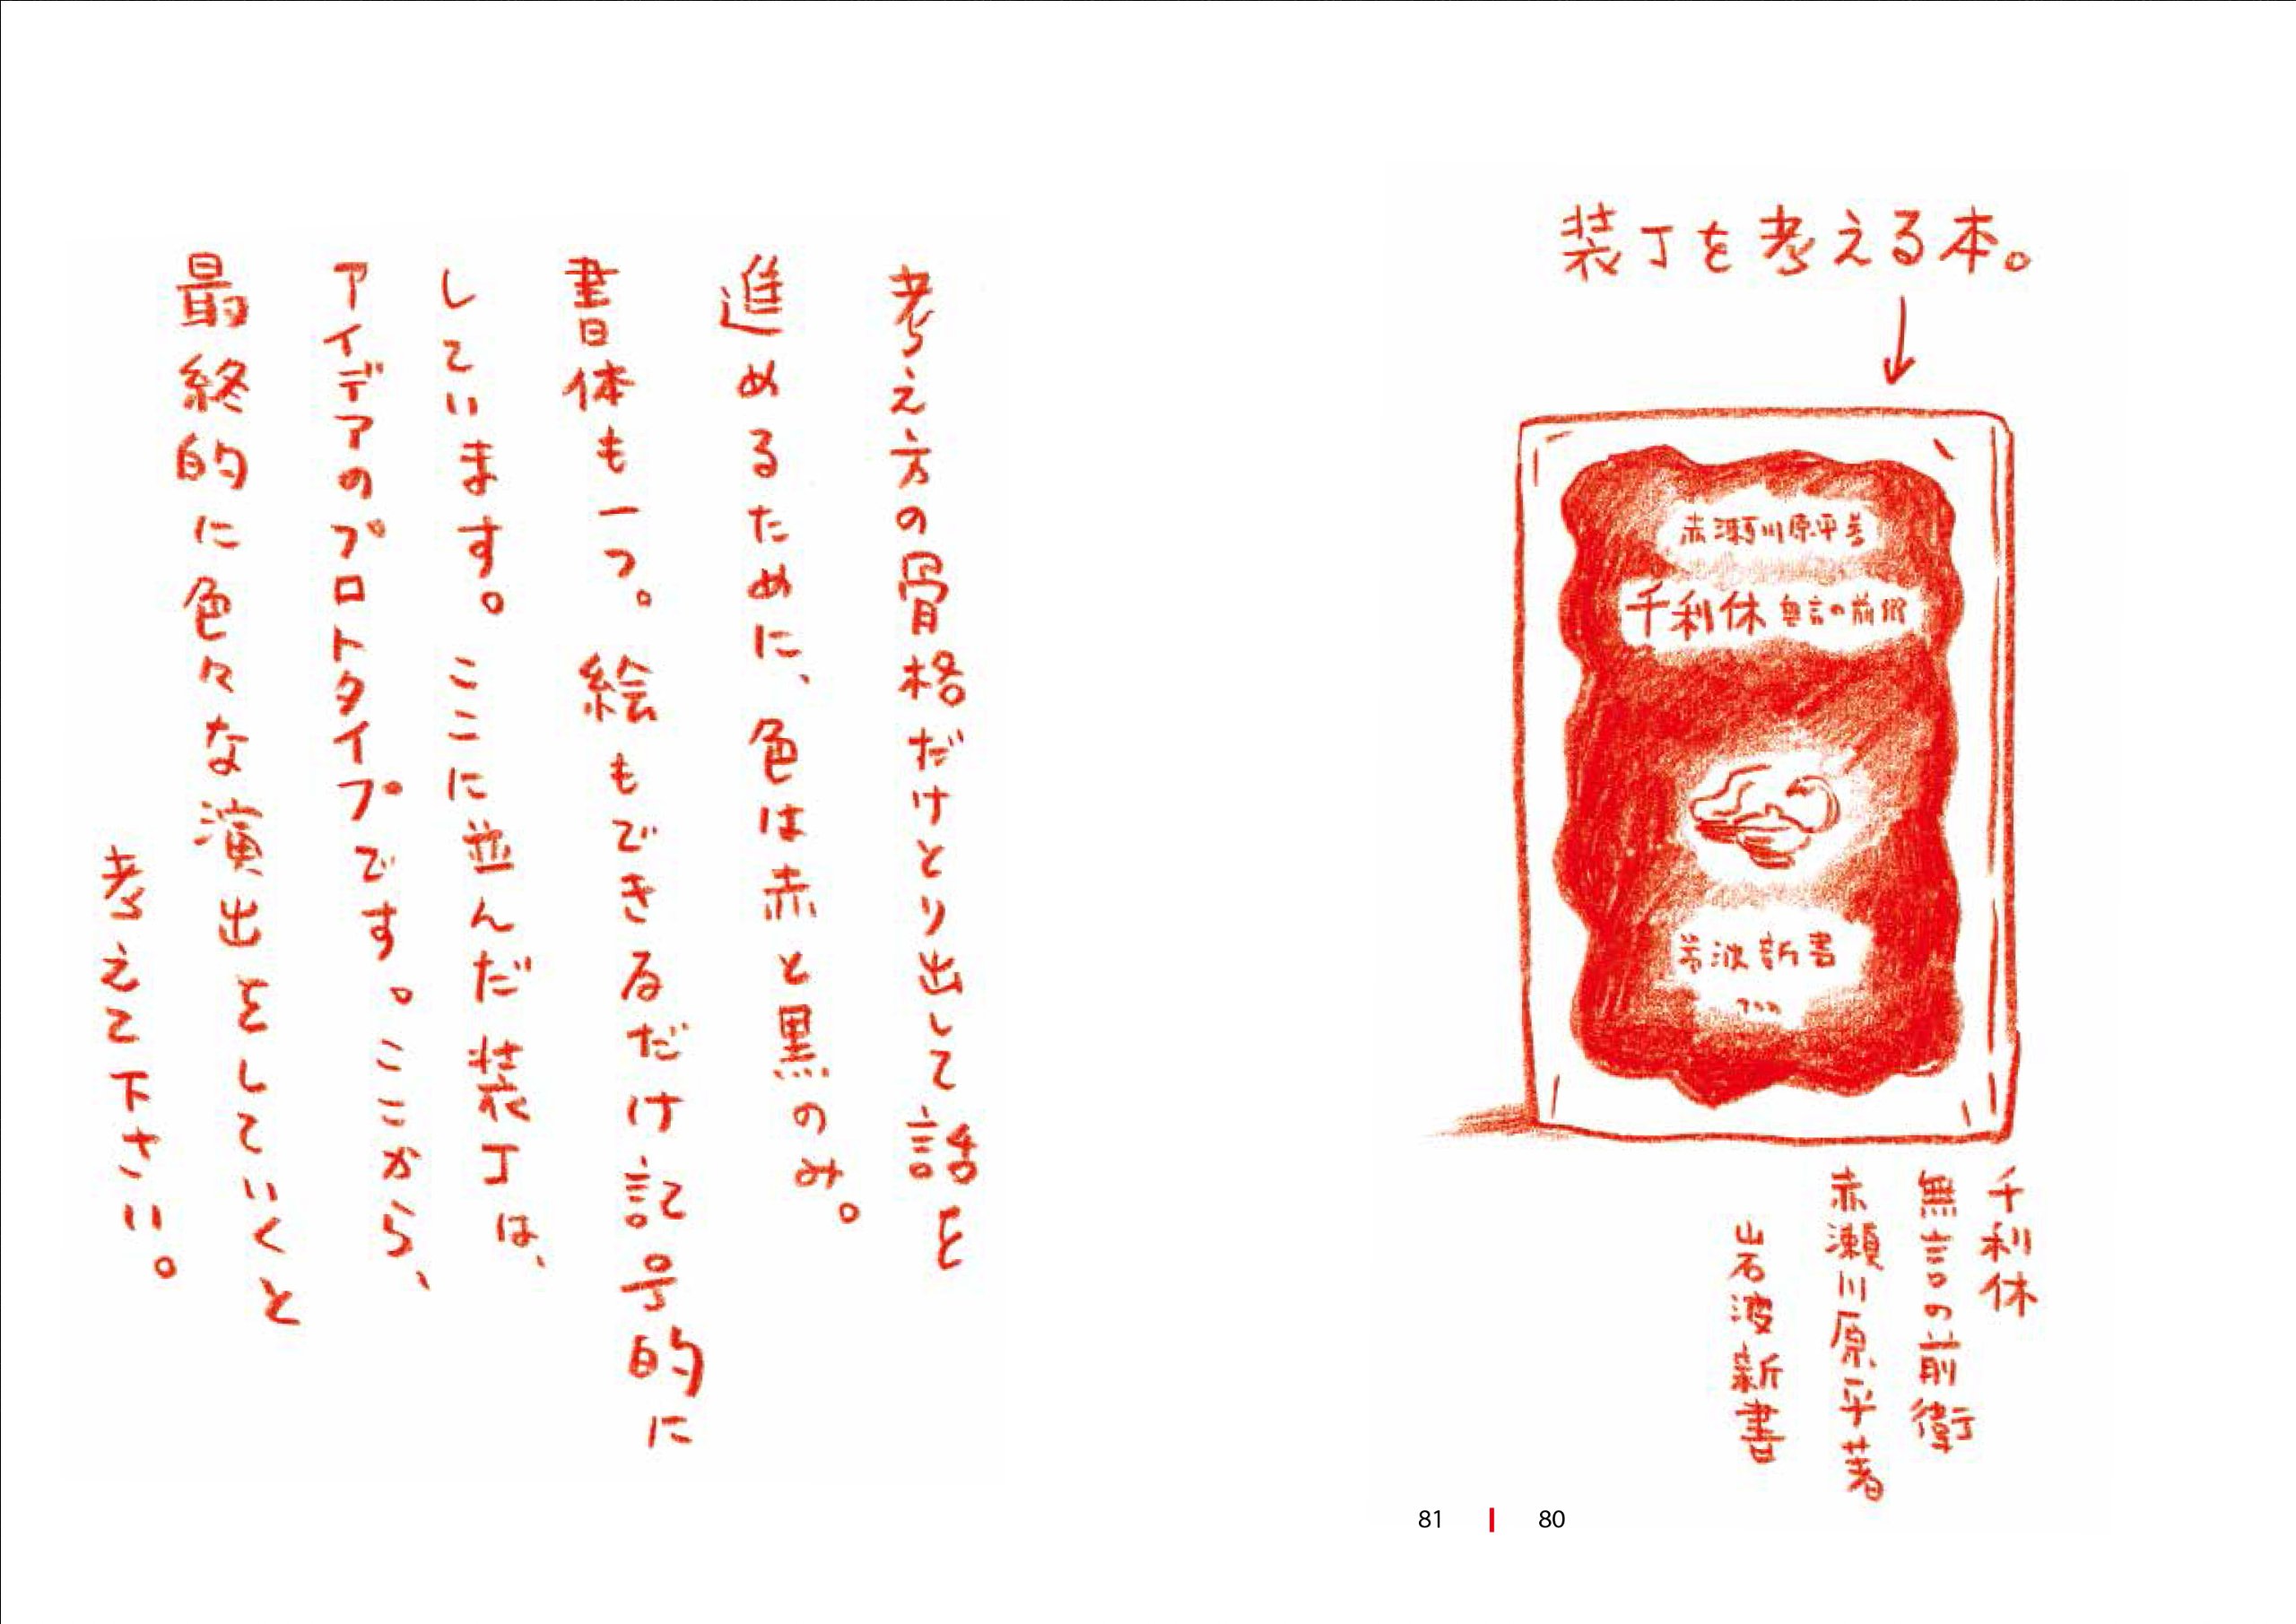 装丁を考える本。
赤瀬川原平著
千利休 無言の前衛
岩波新書
千利休
無言の前衛
赤瀬川原平著
岩波新書
80
考え方の骨格だけとり出して話を
進めるために、色は赤と黒のみ。
書体も一つ。絵もできるだけ記号的に
しています。ここに並んだ装丁は、
アイデアのプロトタイプです。ここから、
最終的に色々な演出をしていくと
考えて下さい。
81